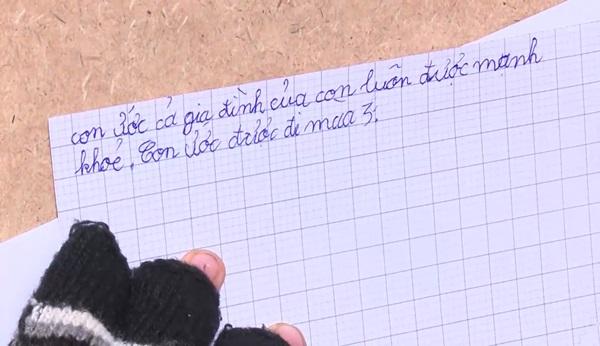 con ước cả gia đình của con luôn được mạnh
khoẻ. Con ước được đi mua 3.